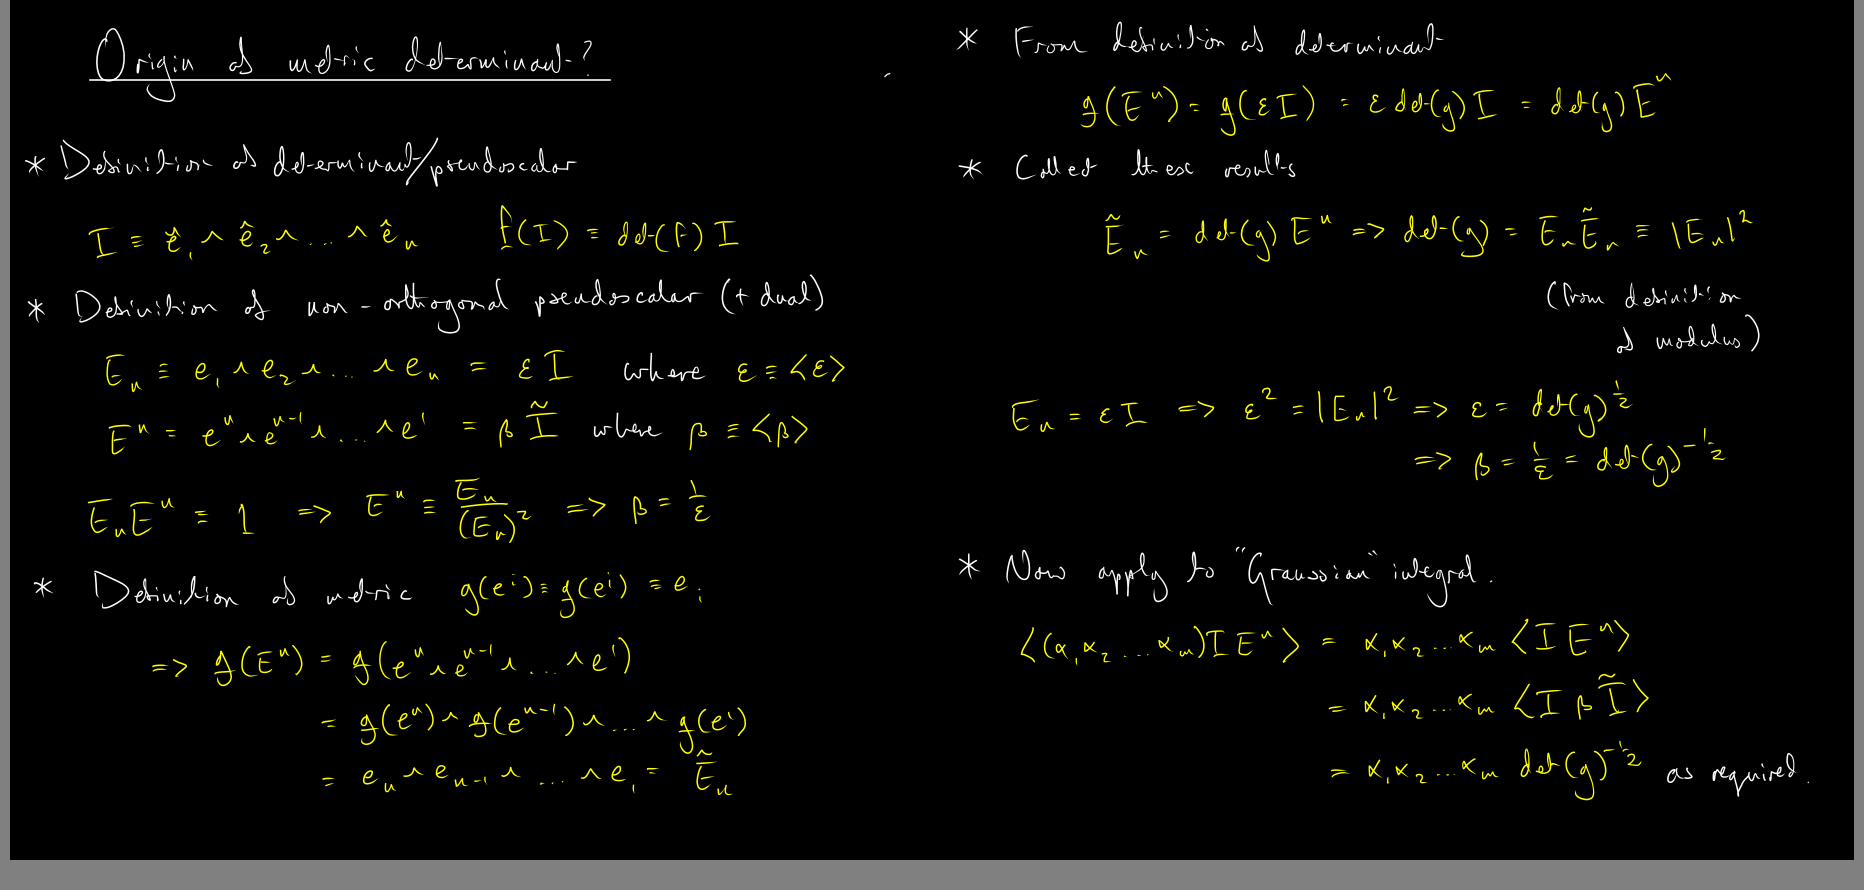 Origin of metric determinant?
* Definition of determinant/pseudoscalar
I ≡ ê₁ ∧ ê₂ ∧ ... ∧ êₙ f(I) ≡ det(f) I
* Definition of non-orthogonal pseudoscalar (+ dual)
Eₙ ≡ e₁ ∧ e₂ ∧ ... ∧ eₙ = εI where ε ≡ <ε>
Eⁿ = eⁿ ∧ eⁿ⁻¹ ∧ ... ∧ e¹ = β Ĩ where β ≡ <β>
EₙEⁿ ≡ 1 => Eⁿ ≡ Eₙ/(Eₙ)² => β = 1/ε
* Definition of metric g(eⁱ) ≡ g(eⁱ) = eᵢ
=> g(Eⁿ) = g(eⁿ ∧ eⁿ⁻¹ ∧ ... ∧ e¹)
= g(eⁿ) ∧ g(eⁿ⁻¹) ∧ ... ∧ g(e¹)
= eₙ ∧ eₙ₋₁ ∧ ... ∧ e₁ = Ẽₙ
* From definition of determinant
g(Eⁿ) = g(εI) = ε det(g) I = det(g) Eⁿ
* Collect these results
Ẽₙ = det(g) Eⁿ => det(g) = EₙẼₙ ≡ |Eₙ|²
(from definition
of modulus)
Eₙ = εI => ε² = |Eₙ|² => ε = det(g)^½
=> β = 1/ε = det(g)^-½
* Now apply to "Graussian" integral.
<(α₁α₂...αₘ)I Eⁿ> = α₁α₂...αₘ <I Eⁿ>
= α₁α₂...αₘ <I β Ĩ>
= α₁α₂...αₘ det(g)^-½ as required.